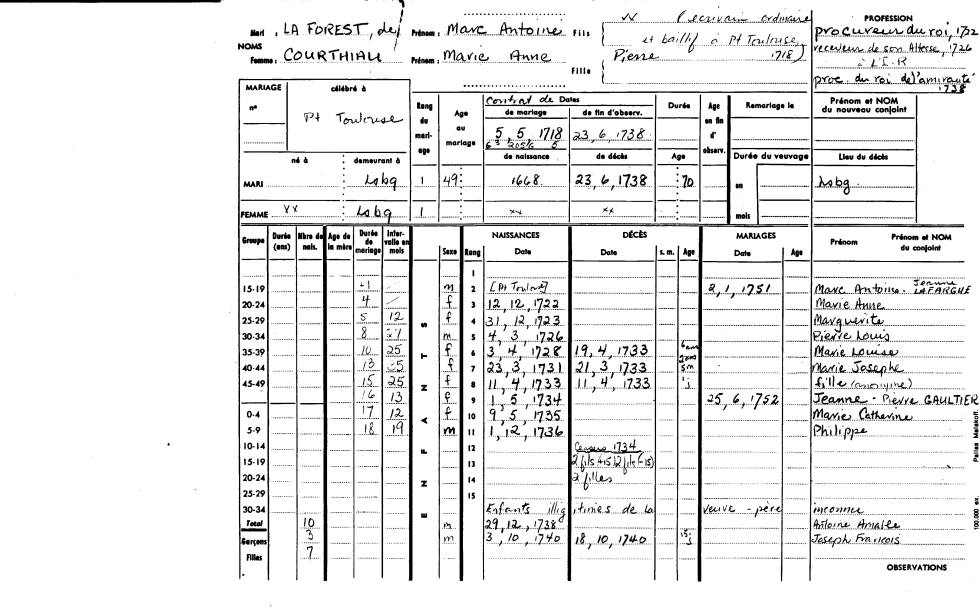 Mari : LA FOREST, de Prénom : Marc Antoine Fils xx (écrivain ordinaire PROFESSION
et bailli à Pt Toulouse, procureur du roi, 1722
NOMS receveur de son Altesse, 1726
Femme : COURTHIAU Prénom : Marie Anne Pierre 1718) à L'I.R
Fille proc. du roi de l'amirauté 1738
MARIAGE célébré à Rang du mari-age Age au mariage Contrat de Dates Durée Age en fin d'observ. Remariage le Prénom et NOM du nouveau conjoint
n° Pt Toulouse de mariage de fin d'observ.
5, 5, 1718 23, 6, 1738
né à demeurant à de naissance de décès Age Durée du veuvage Lieu du décès
MARI Lsbg 1 49 1668 23, 6, 1738 70 en Lsbg
FEMME xx Lsbg 1 xx xx mois
Groupe Durée (ans) Nbre de nais. Age de la mère Durée de mariage Inter-valle en mois ENFANTS Sexe Rang NAISSANCES Date DÉCÈS Date s. m. Age MARIAGES Date Age Prénom Prénom et NOM du conjoint
1
15-19 -1 m 2 [Pt Toulouse] 2, 1, 1751 Marc Antoine - Jeanne LAFARGUE
20-24 4 f 3 12, 12, 1722 Marie Anne
25-29 5 12 f 4 31, 12, 1723 Marguerite
30-34 8 m 5 4, 3, 1726 Pierre Louis
35-39 10 25 f 6 3, 4, 1728 19, 4, 1733 Marie Louise
40-44 13 f 7 23, 3, 1731 21, 3, 1733 Marie Josephe
45-49 15 25 f 8 11, 4, 1733 11, 4, 1733 1j fille (anonyme)
16 13 f 9 1, 5, 1734 25, 6, 1752 Jeanne - Pierre GAULTIER
0-4 17 12 f 10 9, 5, 1735 Marie Catherine
5-9 18 19 m 11 1, 12, 1736 Philippe
10-14 12 Census 1734
15-19 13 2 fils +15) 2 fils (-15)
20-24 14 2 filles
25-29 15
30-34 Enfants illigitimes de la veuve - père inconnu
Total 10 m 29, 12, 1738 Antoine Amable
Garçons 3 m 3, 10, 1740 18, 10, 1740 15j Joseph Francois
Filles 7
OBSERVATIONS
100.000 ex.